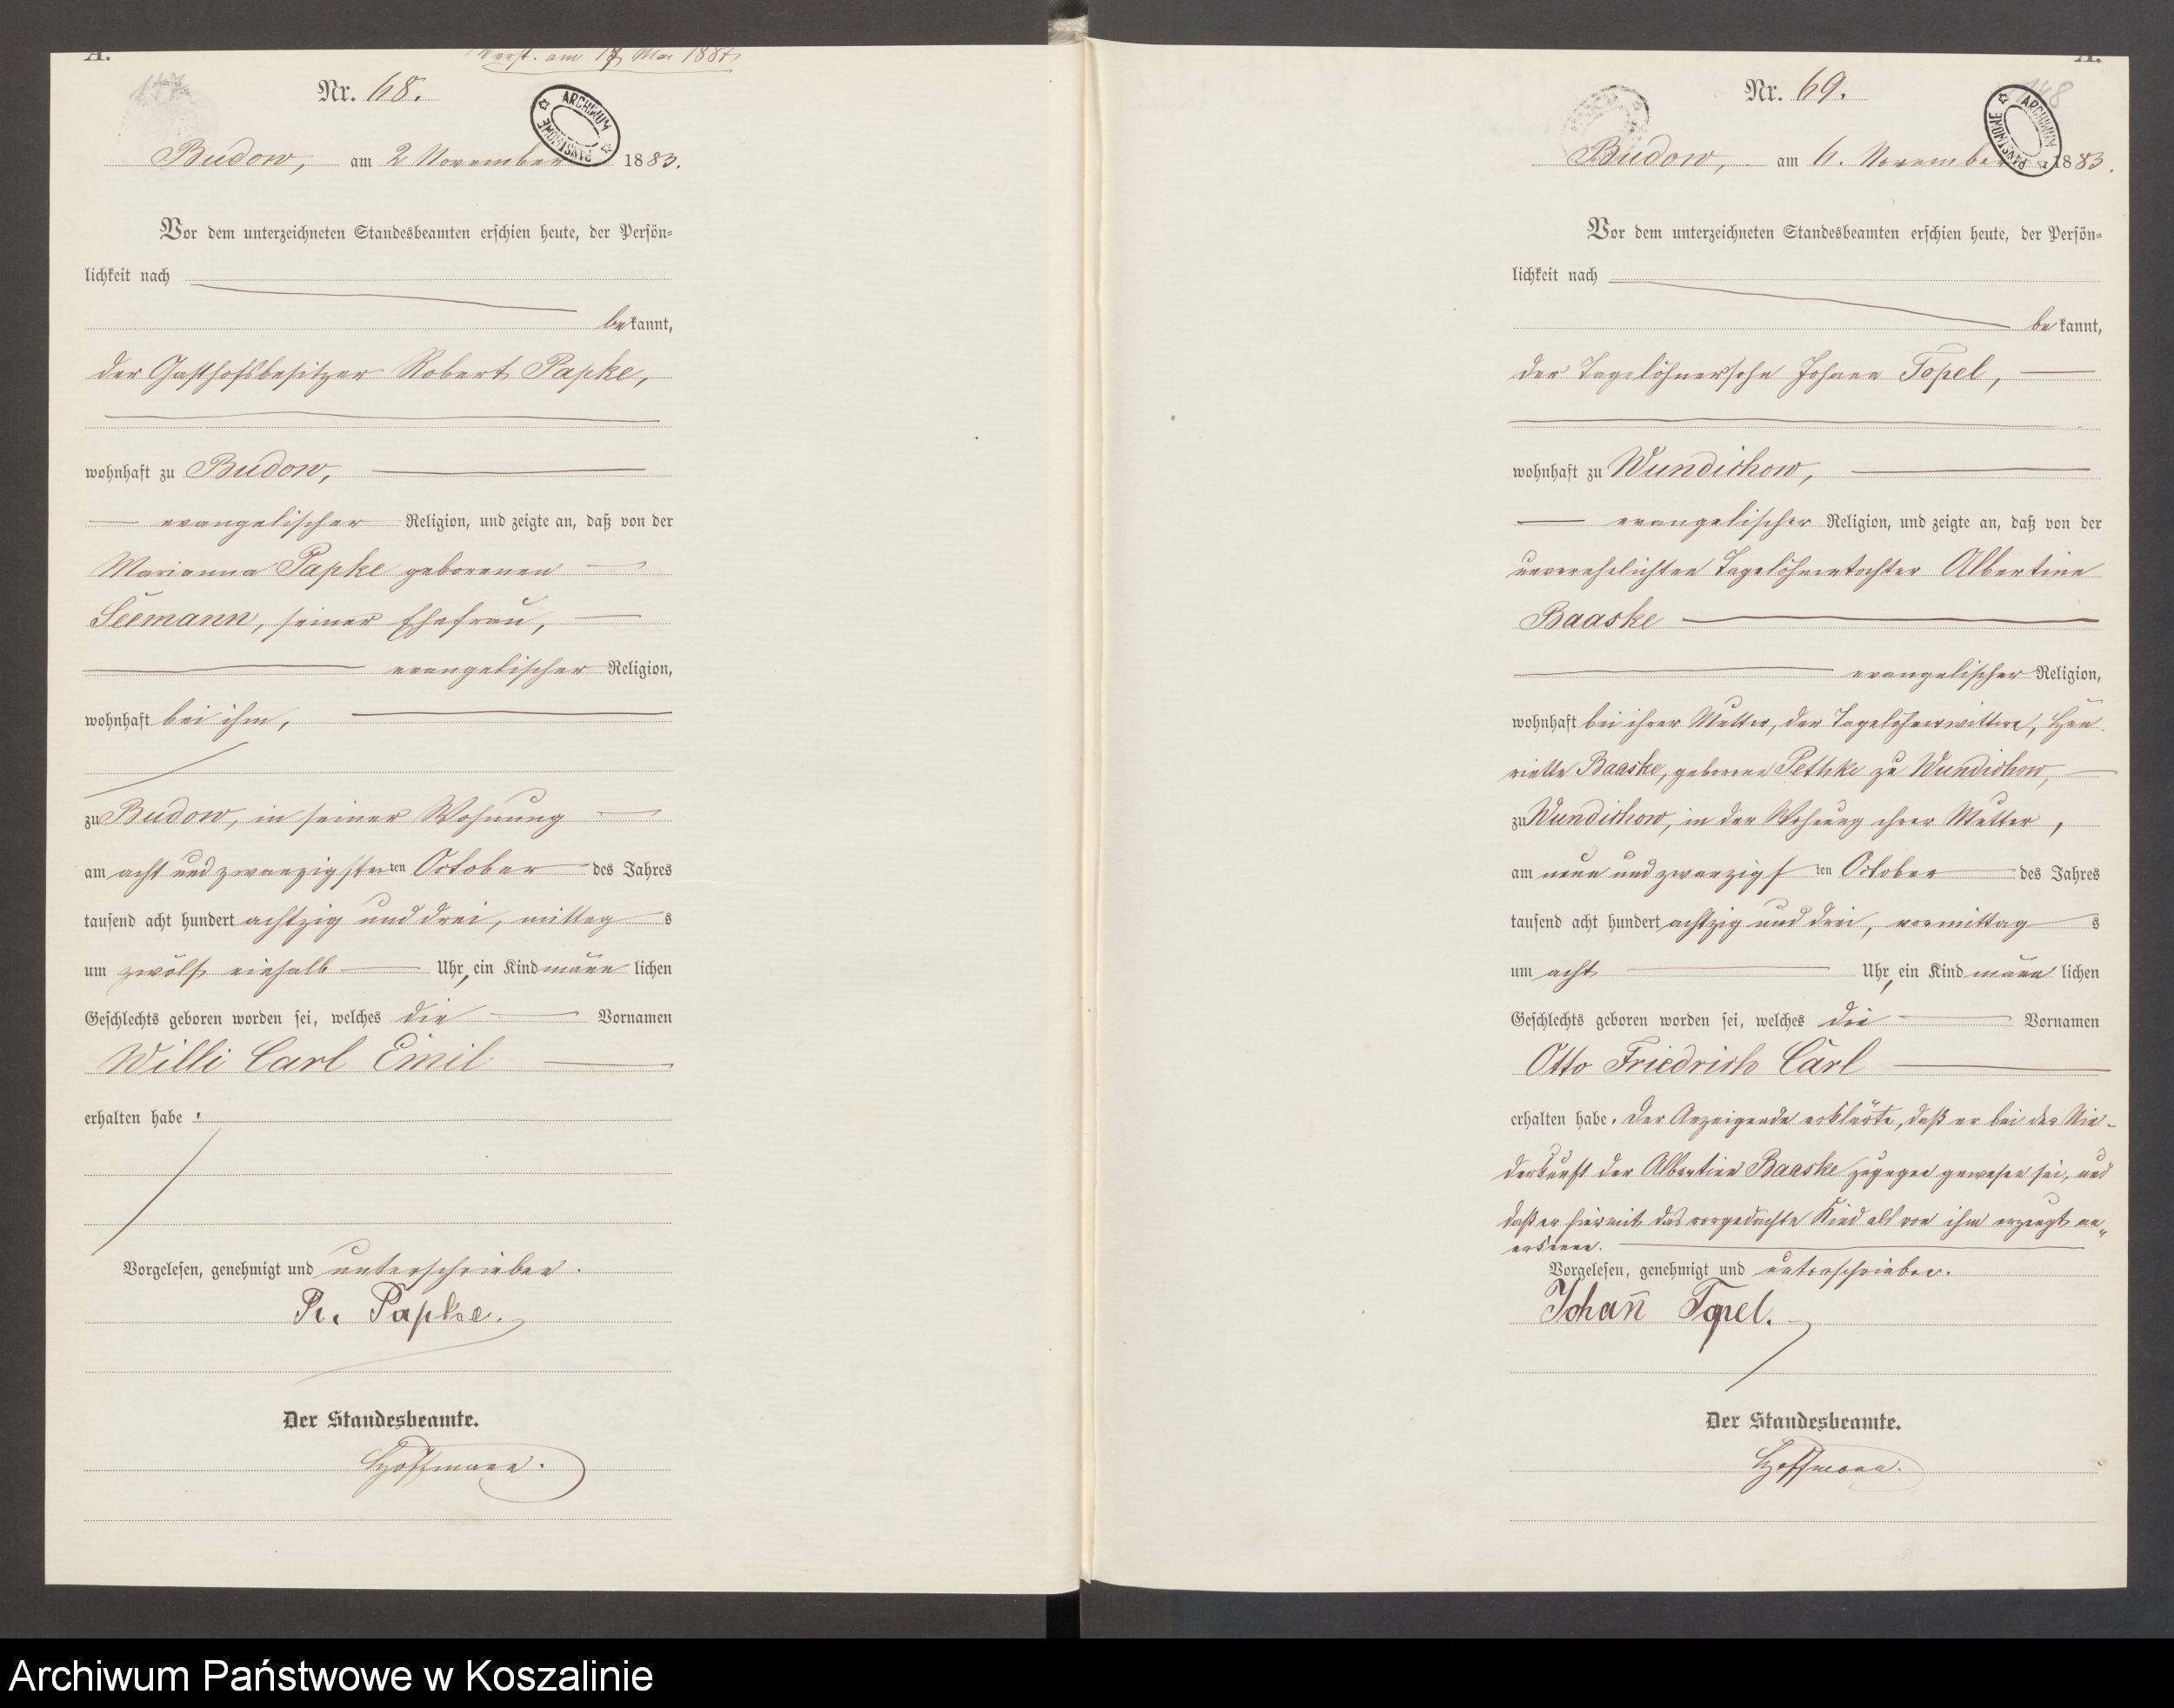 A.
verst. am 17 Mai 1884
Nr. 68.
ARCHIWUM PAŃSTWOWE
Budow, am 2 November 1883.
Vor dem unterzeichneten Standesbeamten erschien heute, der Persön=
lichkeit nach
bekannt,
der Gasthofsbesitzer Robert Papke,
wohnhaft zu Budow,
evangelischer Religion, und zeigte an, daß von der
Marianna Papke geborenen
Seemann, seiner Ehefrau,
evangelischer Religion,
wohnhaft bei ihm,
zu Budow, in seiner Wohnung
am acht und zwanzigsten ten October des Jahres
tausend acht hundert achtzig und drei, mittag s
um zwölf einhalb Uhr, ein Kind männ lichen
Geschlechts geboren worden sei, welches die Vornamen
Willi Carl Emil
erhalten habe.
Vorgelesen, genehmigt und unterschrieben.
R. Papke.
Der Standesbeamte.
Hoffmann.
A.
148
Nr. 69.
ARCHIWUM PAŃSTWOWE
Budow, am 6. November 1883.
Vor dem unterzeichneten Standesbeamten erschien heute, der Persön=
lichkeit nach
bekannt,
der Tagelöhnersohn Johann Topel,
wohnhaft zu Wundichow,
evangelischer Religion, und zeigte an, daß von der
unverehelichten Tagelöhnertochter Albertine
Baaske
evangelischer Religion,
wohnhaft bei ihrer Mutter, der Tagelöhnerwittwe, Hen-
riette Baaske, geborene Pethke zu Wundichow,
zu Wundichow, in der Wohnung ihrer Mutter,
am neun und zwanzigs ten October des Jahres
tausend acht hundert achtzig und drei, vormittag s
um acht Uhr, ein Kind männ lichen
Geschlechts geboren worden sei, welches die Vornamen
Otto Friedrich Carl
erhalten habe. Der Anzeigende erklärte, daß er bei der Nie-
derkunft der Albertine Baaske zugegen gewesen sei, und
daß er hiermit das vorgedachte Kind als von ihm erzeugt an-
erkenne.
Vorgelesen, genehmigt und unterschrieben.
Johan̄ Topel.
Der Standesbeamte.
Hoffmann.
Archiwum Państwowe w Koszalinie